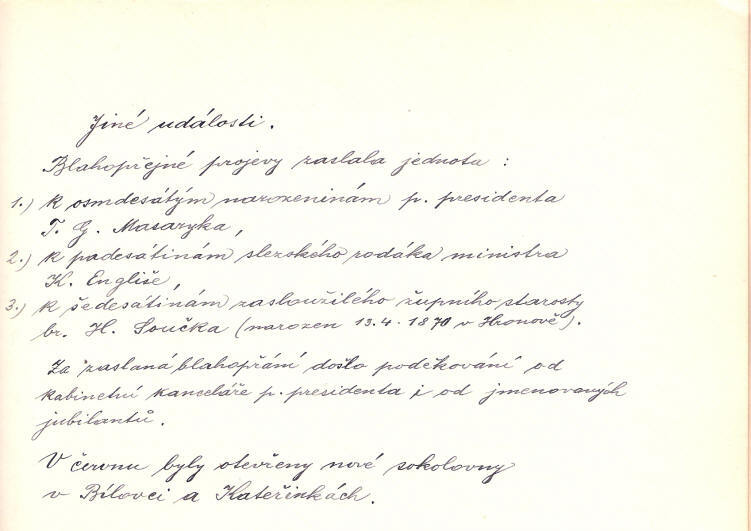 Jiné události.
Blahopřejné projevy zaslala jednota :
1.) k osmdesátým narozeninám p. presidenta
T. G. Masaryka,
2.) k padesátinám slezského rodáka ministra
K. Engliše,
3.) k šedesátinám zasloužilého župního starosty
br. H. Součka (narozen 13.4. 1870 v Hronově).
Za zaslaná blahopřání došlo poděkování od
kabinetní kanceláře p. presidenta i od jmenovaných
jubilantů.
V červnu byly otevřeny nové sokolovny
v Bílovci a Kateřinkách.